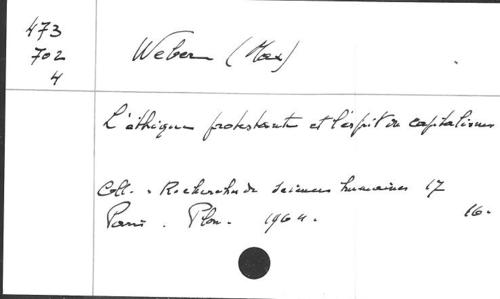 473
702
4
Weber (Max)
L'éthique protestante et l'esprit du capitalisme
Coll. "Recherches de sciences humaines 17
Paris. Plon. 1964.
16.